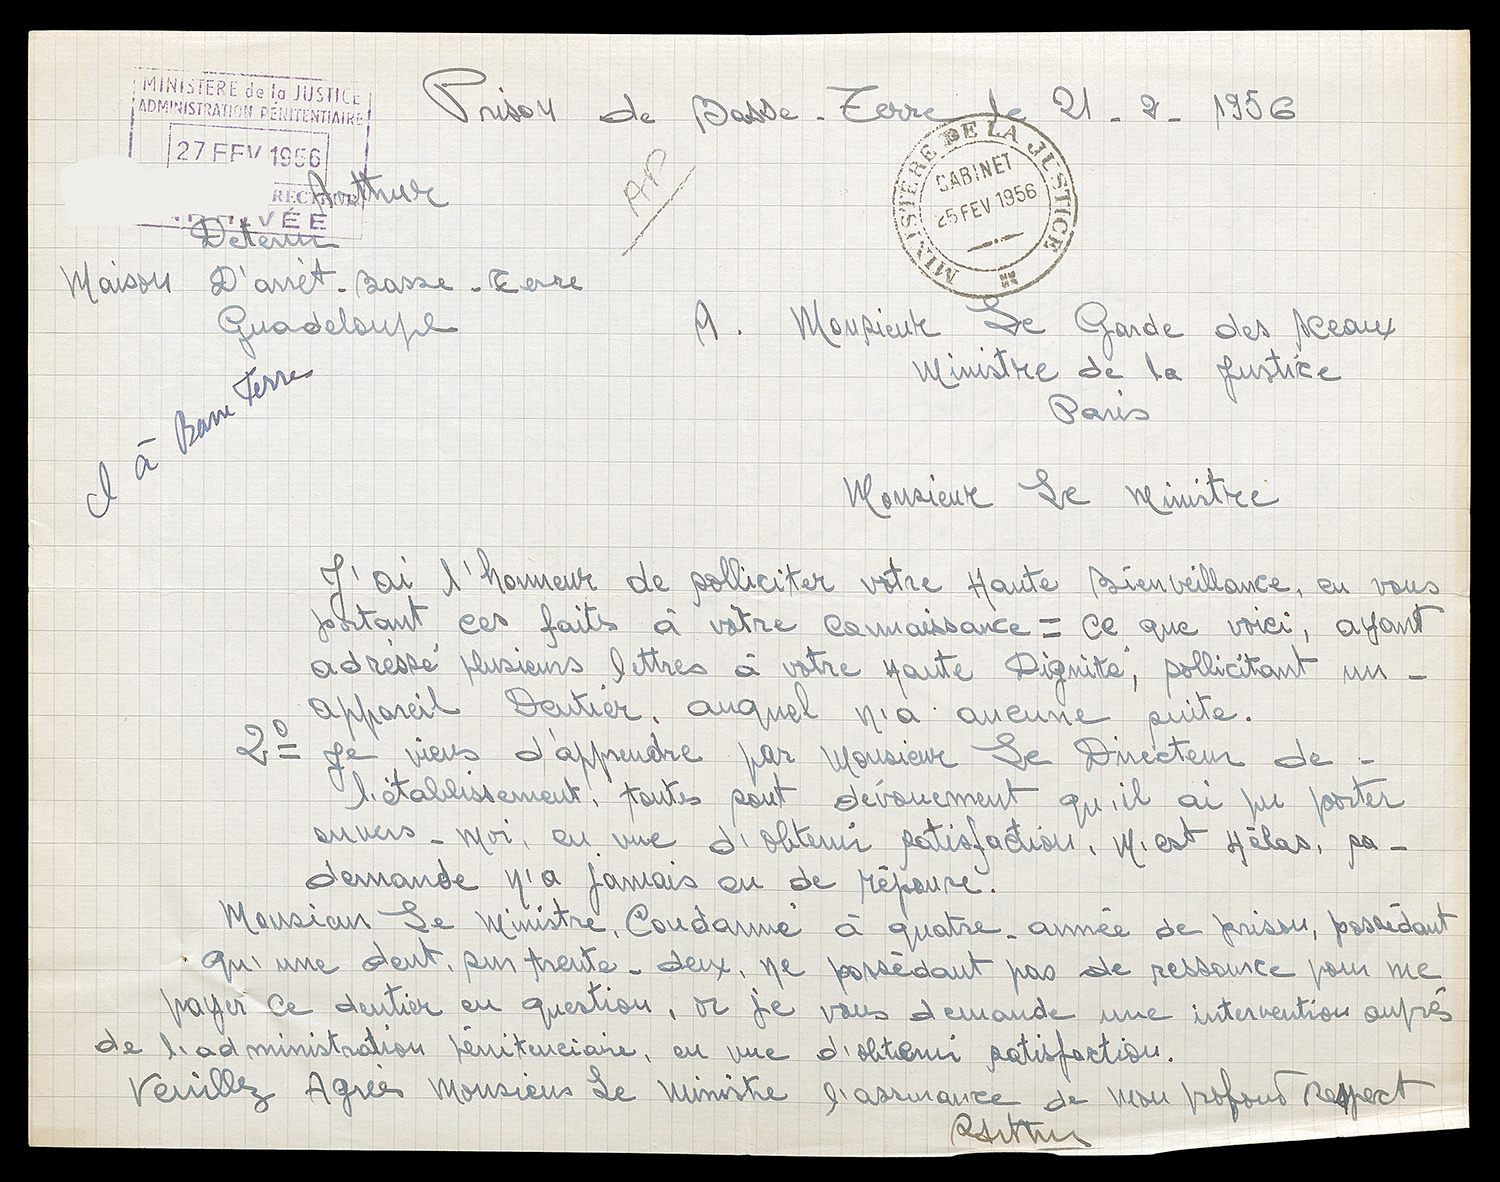 Prison de Basse-Terre le 21-2-1956
MINISTERE de la JUSTICE
ADMINISTRATION PÉNITENTIAIRE
27 FEV 1956
ARRIVÉE
MINISTÈRE DE LA JUSTICE
CABINET
25 FEV 1956
AP
Arthur
Detenu
Maison D'arrêt-Basse-Terre
Guadeloupe
à Basse Terre
A. Monsieur Le Garde des sceaux
Ministre de la Justice
Paris
Monsieur Le Ministre
J'ai l'honneur de solliciter votre Haute Bienveillance, en vous
portant ces faits à vôtre connaissance = ce que voici, ayant
adréssé plusieurs lettres à votre Haute Dignité, sollicitant un -
appareil Dentier, auquel n'a aucune suite.
2º= Je viens d'apprendre par Monsieur Le Directeur de -
l'établissement, toutes sont dévouement qu,il ai pu porter
envers - moi, en vue d'obtenir satisfaction, N'est Hélas, sa -
demande n'a jamais eu de réponse.
Monsieur Le Ministre, Condamné à quatre - année de prison, possédant
qu'une dent, sur trente - deux, ne possédant pas de ressource pour me
payer ce dentier en question, or je vous demande une intervention auprés
de l'administration pénitenciaire, en vue d'obtenir satisfaction.
Veuillez Agréer Monsieur Le Ministre l'assurance de mon profond Respect
Arthur